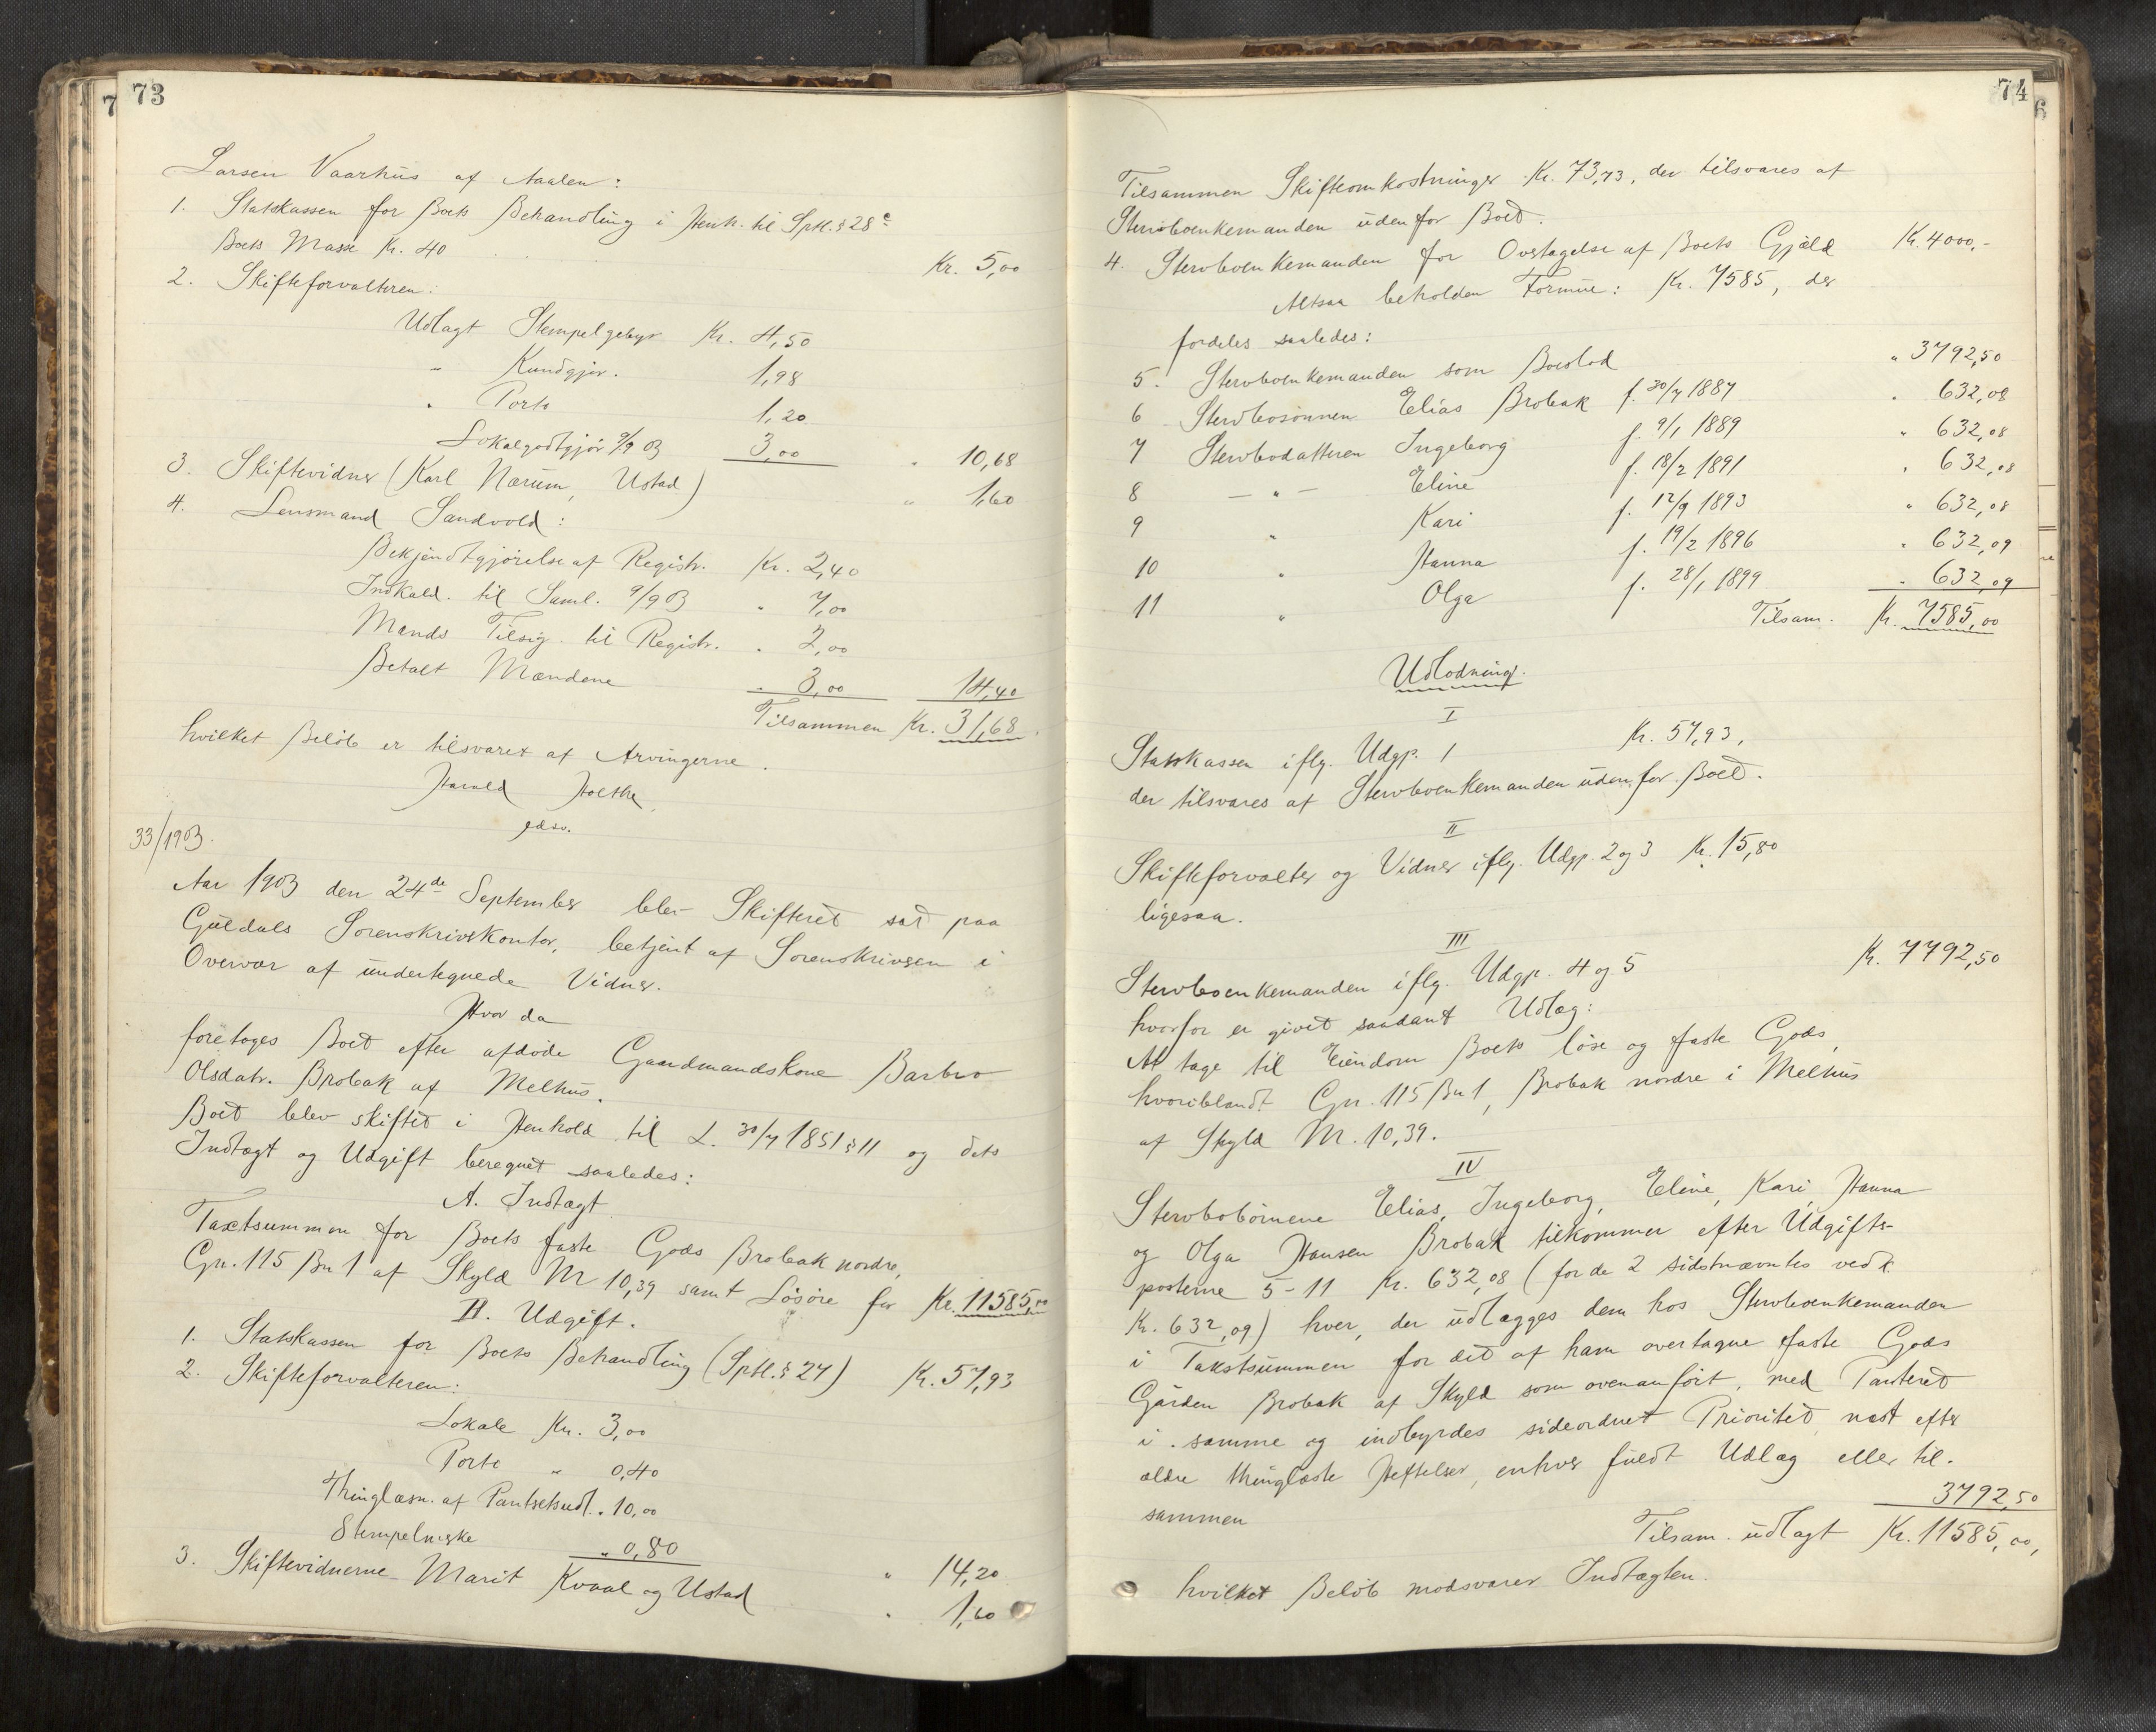 73
Larsen Vaarhus af Aaalen:
1. Statskassen for Boets Behandling i Henh. til Sptl. § 28 c
Boets Masse Kr. 40 Kr. 5,00
2. Skifteforvalteren:
Udlagt Stempelgebyr Kr. 4,50
" Kundgjør. 1,98
" Porto 1,20
Lokalgodtgjør 9/9 03 3,00 " 10,68
3. Skiftevidner (Karl Nærum, Ustad) " 1,60
4. Lensmand Sandvold:
Bekjendtgjørelse af Registr. Kr. 2,40
Indkald. til Saml. 9/9 03 " 7,00
Mænds Tilsig. til Registr. " 2,00
Betalt Mændene " 3,00 14,40
Tilsammen Kr. 31,68.
hvilket Beløb er tilsvaret af Arvingerne.
Harald Holthe
edsv.
33/1903.
Aar 1903 den 24de September blev Skifteret sat paa
Guldals Sorenskriverkontor, betjent af Sorenskriveren i
Overvær af undertegnede Vidner.
Hvor da
foretoges Boet efter afdøde Gaardmandskone Barbro
Olsdatr. Brobak af Melhus.
Boet blev skiftet i Henhold til L. 30/7 1851 § 11 og dets
Indtægt og Udgift beregnet saaledes:
A. Indtægt
Taxtsummen for Boets faste Gods Brobak nordre,
Gn. 115 Bn 1 af Skyld M 10,39 samt Løsøre for Kr. 11585,00
B. Udgift.
1. Statskassen for Boets Behandling (Sptl. § 27) Kr. 57,93
2. Skifteforvalteren:
Lokale Kr. 3,00
Porto " 0,40
Thinglæsn. af Pantsetsudl. " 10,00
Stempelmrke " 0,80 " 14,20
3. Skiftevidnerne Marit Kvaal og Ustad " 1,60
74
Tilsammen Skifteomkostninger Kr. 73,73, der tilsvares af
Stervboenkemanden udenfor Boet.
4. Stervboenkemanden for Overtagelse af Boets Gjæld Kr. 4000,-
Altsaa beholden Formue: Kr. 7585, der
fordeles saaledes:
5. Stervboenkemanden som Boeslod " 3792,50
6 Stervbosønnen Elias Brobak f. 30/7 1887 " 632,08
7 Stervbodatteren Ingeborg f. 9/1 1889 " 632,08
8 — " — Eline f. 18/2 1891 " 632,08
9 " Kari f. 12/9 1893 " 632,08
10 " Hanna f. 19/2 1896 " 632,09
11 " Olga f. 28/1 1899 " 632,09
Tilsam. Kr. 7585,00
Udlodning.
I
Statskassen iflg. Udgp. 1 Kr. 57,93,
der tilsvares af Stervboenkemanden udenfor Boet.
II
Skifteforvalter og Vidner iflg. Udgp. 2 og 3 Kr. 15,80
ligesaa.
III
Stervboenkemanden iflg. Udgp. 4 og 5 Kr. 7792,50
hvorfor er givet saadant Udlæg:
At tage til Eiendom Boets løse og faste Gods,
hvoriblandt Gn. 115 Bn 1, Brobak nordre i Melhus
af Skyld M. 10,39.
IV
Stervbobørnene Elias, Ingeborg, Eline, Kari, Hanna
og Olga Hansen Brobak tilkommer efter Udgifts-
posterne 5-11 Kr. 632,08 (for de 2 sidstnævntes vedk.
Kr. 632,09) hver, der udlægges dem hos Stervboenkemanden
i Takstsummen for det af ham overtagne faste Gods
Gården Brobak af Skyld som ovenanført, med Panteret
i samme og indbyrdes sideordnet Prioritet næst efter
ældre thinglæste Heftelser, enhver fuldt Udlæg eller til-
sammen 3792,50
Tilsam. udlagt Kr. 11585,00,
hvilket Beløb modsvarer Indtægten.